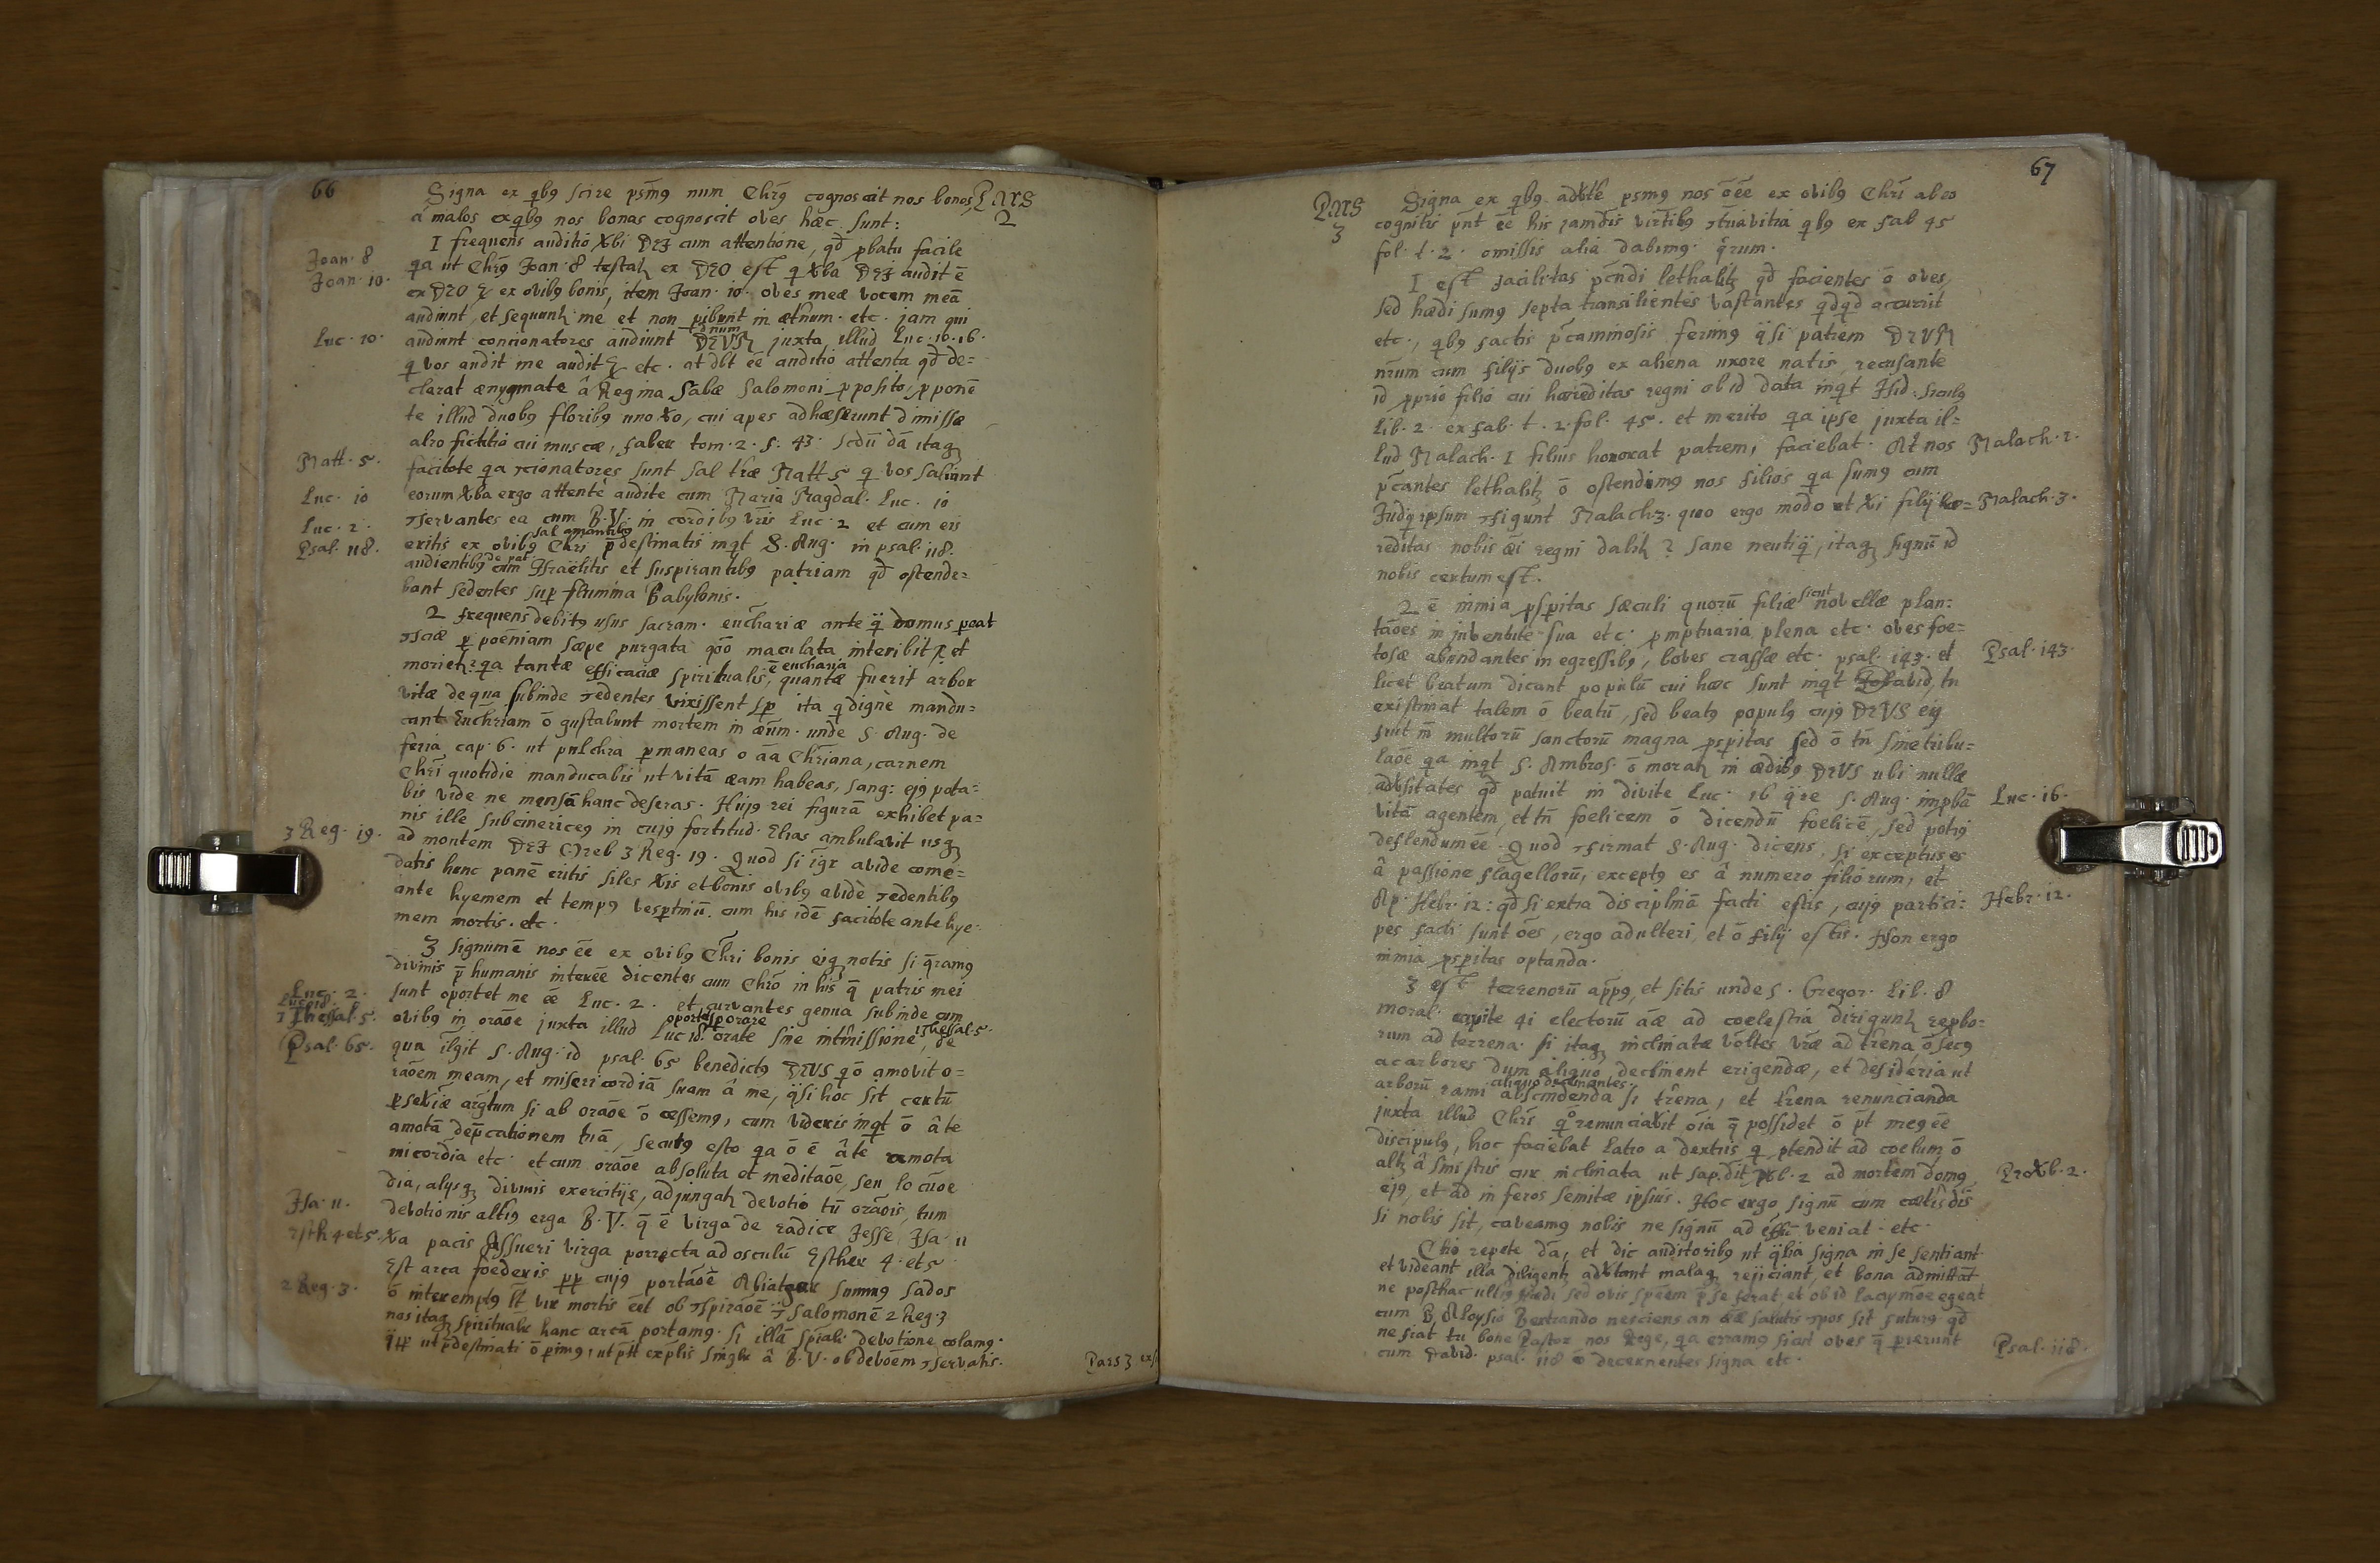 66
Signa ex qbꝰ scire psmꝰ num Chrꝰ cognoscat nos bonos, Pars
â malos ex qbꝰ nos bonas cognoscit oves hæc sunt: 2
1 frequens auditio Xbi DEI cum attentione, qd pbatu facile
Joan. 8
qa ut Chrꝰ Joan. 8 testatꝛ ex DEO est q Xba DEI audit ē
Joan. 10.
ex DEO & ex ovibꝰ bonis, item Joan. 10. oves meæ vocem meā
audiunt, et sequuntꝛ me et non pibunt in æthnum. etc. jam qui
Luc. 10.
audiunt concionatores audiunt DEUM juxta illud Luc. 10. 16.
q vos audit me audit & etc. at dbt ēē auditio attenta qd de=
clarat ænygmate â Regina Sabæ Salomoni pposito, pponē
te illud duobꝰ floribꝰ uno Xo, cui apes adhæserunt dimisso
alio fictitio cui muscæ, faber tom. 2. f. 43. scdū dā itaqꝫ
Matt. 5.
facitote qa ɔcionatores sunt sal thæ Matt 5 q vos saliunt
Luc. 10
eorum Xba ergo attentè audite cum Maria Magdal. Luc. 10
Luc. 2.
ɔservantes ea cum B. V. in cordibꝰ vris Luc. 2 et cum eis
Psal. 118.
eritis ex ovibꝰ Chri p̄destinatis inqt S. Aug. in psal. 118.
audientibꝰ cum Israëlitis et suspirantibꝰ patriam qd ostende=
bant sedentes sup flumina Babylonis.
2 frequens debitꝰ usus sacram. euchariæ ante q̄ domus peat
ɔsciæ p poēniam sæpe purgata qōo maculata interibit, et
morietꝛ: qa tantæ efficaciæ spiritualis, ē eucharia quantæ fuerit arbor
vitæ de qua subinde ɔedentes vixissent sp ita q dignè mandu=
cant Euchriam ō gustabunt mortem in æūm. unde S. Aug. de
feria cap. 6. ut pulchra pmaneas o āa Chriana, carnem
Chri quotidie manducabis ut vitā æam habeas, sang: ejꝰ pota=
bis vide ne mensā hanc deseras. Hujꝰ rei figurā exhibet pa=
3 Reg. 19.
nis ille subcinericeꝰ in cujꝰ fortitud. Elias ambulavit usqꝫ
ad montem DEI Oreb 3 Reg. 19. Quod si igr avide come=
datis hunc panē eritis siles Xis et bonis ovibꝰ avidè ɔedentibꝰ
ante hyemem et tempꝰ vesptinū. cum his idē facitote ante hye=
mem mortis. etc.
3 signum ē nos ēe ex ovibꝰ Chri bonis eiqꝫ notis si q̄ramꝰ
divinis p̄ humanis interēe dicentes cum Chrō in his q̄ patris mei
Luc. 2.
sunt oportet me ēe Luc. 2. et curvantes genua subinde cum
Luc. 18.
1 Thessal. 5.
ovibꝰ in orāoe juxta illud Luc 18. oportet sp orare orate sine intmissione, 1 Thessal. 5. de
Psal. 65.
qua ilgit S. Aug. id psal. 65 benedictꝰ DEUS qō amovit o=
rāoem meam, et misericordiā suam â me, q̄si hoc sit certū
psetiæ argtum si ab orāoe ō cessemꝰ, cum videris inqt ō â te
amotā dep̄cationem tuā, securꝰ esto qa ō ē â te amota
micordia etc. et cum orāoe absoluta et meditāoe, seu lo cūoe
dia, alysqꝫ divinis exercitijs, adjungatꝛ devotio tū orāois, tum
Isa. 11.
devotionis altiꝰ erga B. V. q̄ ē virga de radice Jesse Isa. 11
Esth 4 et 5.
Xa pacis Assueri virga porrecta ad osculū Esther 4. et 5
Est arca foederis pp cujꝰ portāoē Abiatar summꝰ sados
2 Reg. 3.
ō interemptꝰ lt vir mortis ēet ob ɔspirāoē ī Salomonē 2 Reg. 3
nos itaqꝫ spiritualr hanc arcā portamꝰ. si illā spiali devotione colamꝰ.
ut pdestinati ō pimꝰ, ut ptt explis singlr â B. V. ob devoēm ɔservatis.
Pars 3
67
Pars
3
Signa ex qbꝰ adXte psmꝰ nos ō ēe ex ovibꝰ Chri ab eo
cognitis pnt ēe his jamdis virtibꝰ ɔtria vitia qbꝰ ex fab 45
fol. t. 2. omissis alia dabimꝰ. q̄rum.
1 est facilitas pcndi lethalitꝛ qd facientes ō oves,
sed hædi sumꝰ septa transilientes vastantes qdqd accurrit
etc., qbꝰ factis pcaminosis ferimꝰ q̄si patrem DEUM
nrum cum filijs duobꝰ ex aliena uxore natis, recusante
id pprio filio cui hæreditas regni ob id data inqt Isid: siculꝰ
lib. 2. ex fab. t. 2. fol. 45. et merito qa ipse juxta il=
lud Malach. 1 filius honorat patrem, faciebat. At nos Malach. 1.
pcantes lethalitꝛ ō ostendimꝰ nos filios qa sumꝰ cum
Judq ipsum ɔfigunt Malach. 3. quo ergo modo ut Xi filij hæ= Malach. 3.
reditas nobis æi regni dabitꝛ? sane neutiq̄, itaqꝫ signū id
nobis certum est.
2 ē nimia pspitas sæculi quorū filiæ sicut novellæ plan:
tāoes in juventute sua etc. pmptuaria plena etc. oves foe=
tosæ abundantes in egressibꝰ, boves crassæ etc. psal. 143. et Psal. 143.
licet beatum dicant populū cui hæc sunt inqt David, tn
existimat talem ō beatū, sed beatꝰ populꝰ cujꝰ DEUS eiꝰ
fuit m̄ multorū sanctorū magna pspitas sed ō tn sine tribu=
lāoe qa inqt S. Ambros. ō moratꝛ in ædibꝰ DEUS ubi nullæ
adXsitates qd patuit in divite Luc. 16 q̄re S. Aug. impbā Luc. 16.
vitā agentem, et tn foelicem ō dicendū foelicē, sed potiꝰ
deflendum ēe. Quod ɔfirmat S. Aug. dicens, si exceptus es
â passione flagellorū, exceptꝰ es â numero filiorum, et
Ap. Hebr. 12: qd si extra disciplinā facti estis, cujꝰ partici: Hebr. 12.
pes facti sunt ōes, ergo adulteri et ō filij estis. Non ergo
nimia pspitas optanda.
3 est terrenorū appꝰ, et sitis unde S. Gregor. Lib. 8
moral. capite 4i electorū āæ ad coelestia diriguntꝛ repbo=
rum ad terrena. si itaqꝫ inclinatæ voltes vræ ad thena, ō secꝰ
ac arbores dum aliquo declinent erigendæ, et desideria ut
arborū rami aliquo declinantes abscindenda si thena, et thena renuncianda
juxta illud Chri q̊ renunciabit ōia q̄ possidet ō pt meꝰ ēe
discipulꝰ, hoc faciebat latro a dextris q ptendit ad coelum, ō
altꝛ â sinistris cur inclinata ut sap. dit pXb. 2 ad mortem domꝰ ProXb. 2.
ejꝰ, et ad inferos semitæ ipsius. Hoc ergo signū cum cætis dis
si nobis sit, caveamꝰ nobis ne signū ad effū veniat. etc.
Clio repete dā, et dic auditoribꝰ ut q̄lia signa in se sentiant
et videant illa diligentꝛ adXtant malaqꝫ rejiciant, et bona admittāt
ne posthac ulliꝰ hædi sed ovis spēem p̄ se ferat et ob id lacrymæ egeat
cum B. Aloysio Bertrando nesciens an æ salutis ɔpos sit futurꝰ qd
ne fiat tu bone Pastor nos Rege, qa erramꝰ sicut oves q̄ perierunt
cum David. psal. 118 ō decernentes signa etc. Psal. 118.